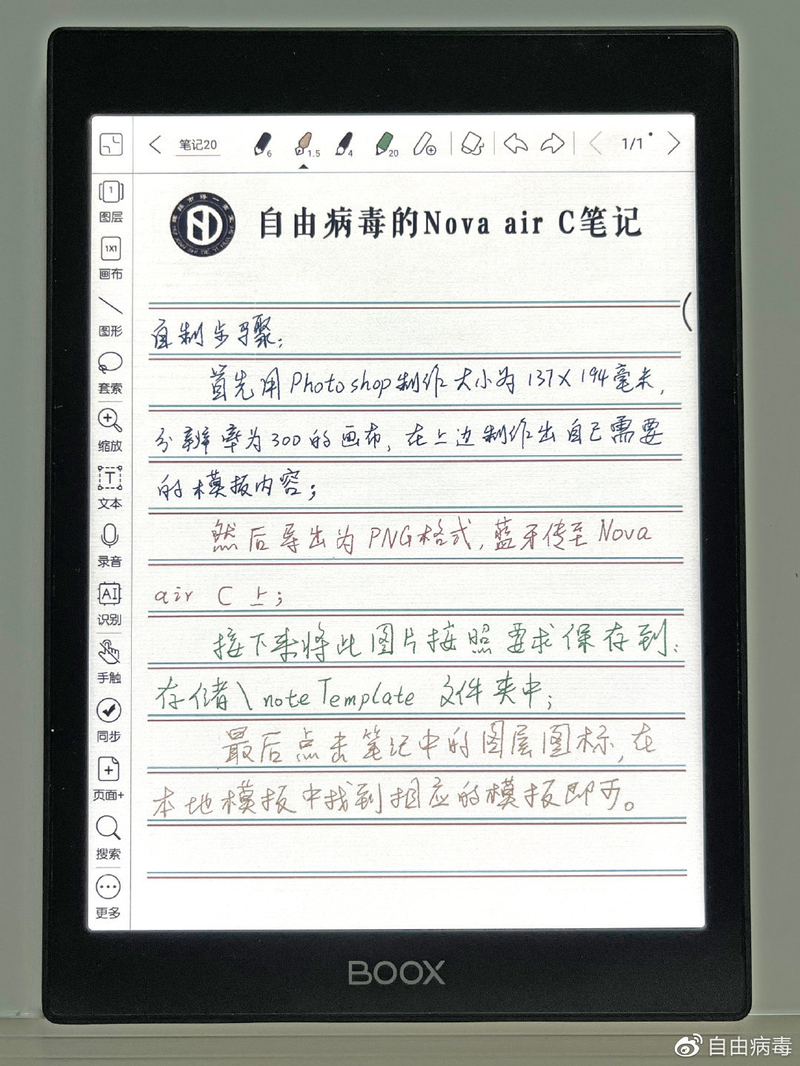 笔记20
6
1.5
4
20
1/1
1
图层
1X1
画布
图形
套索
缩放
T
文本
录音
AI
识别
手触
同步
页面+
搜索
更多
自由病毒的Nova air C笔记
自制步骤:
首先用Photoshop制作大小为137X194毫米,
分辨率为300的画布,在上边制作出自己需要
的模板内容;
然后导出为PNG格式,蓝牙传至Nova
air C上;
接下来将此图片按照要求保存到:
存储\noteTemplate 文件夹中;
最后点击笔记中的图层图标,在
本地模板中找到相应的模板即可。
BOOX
自由病毒